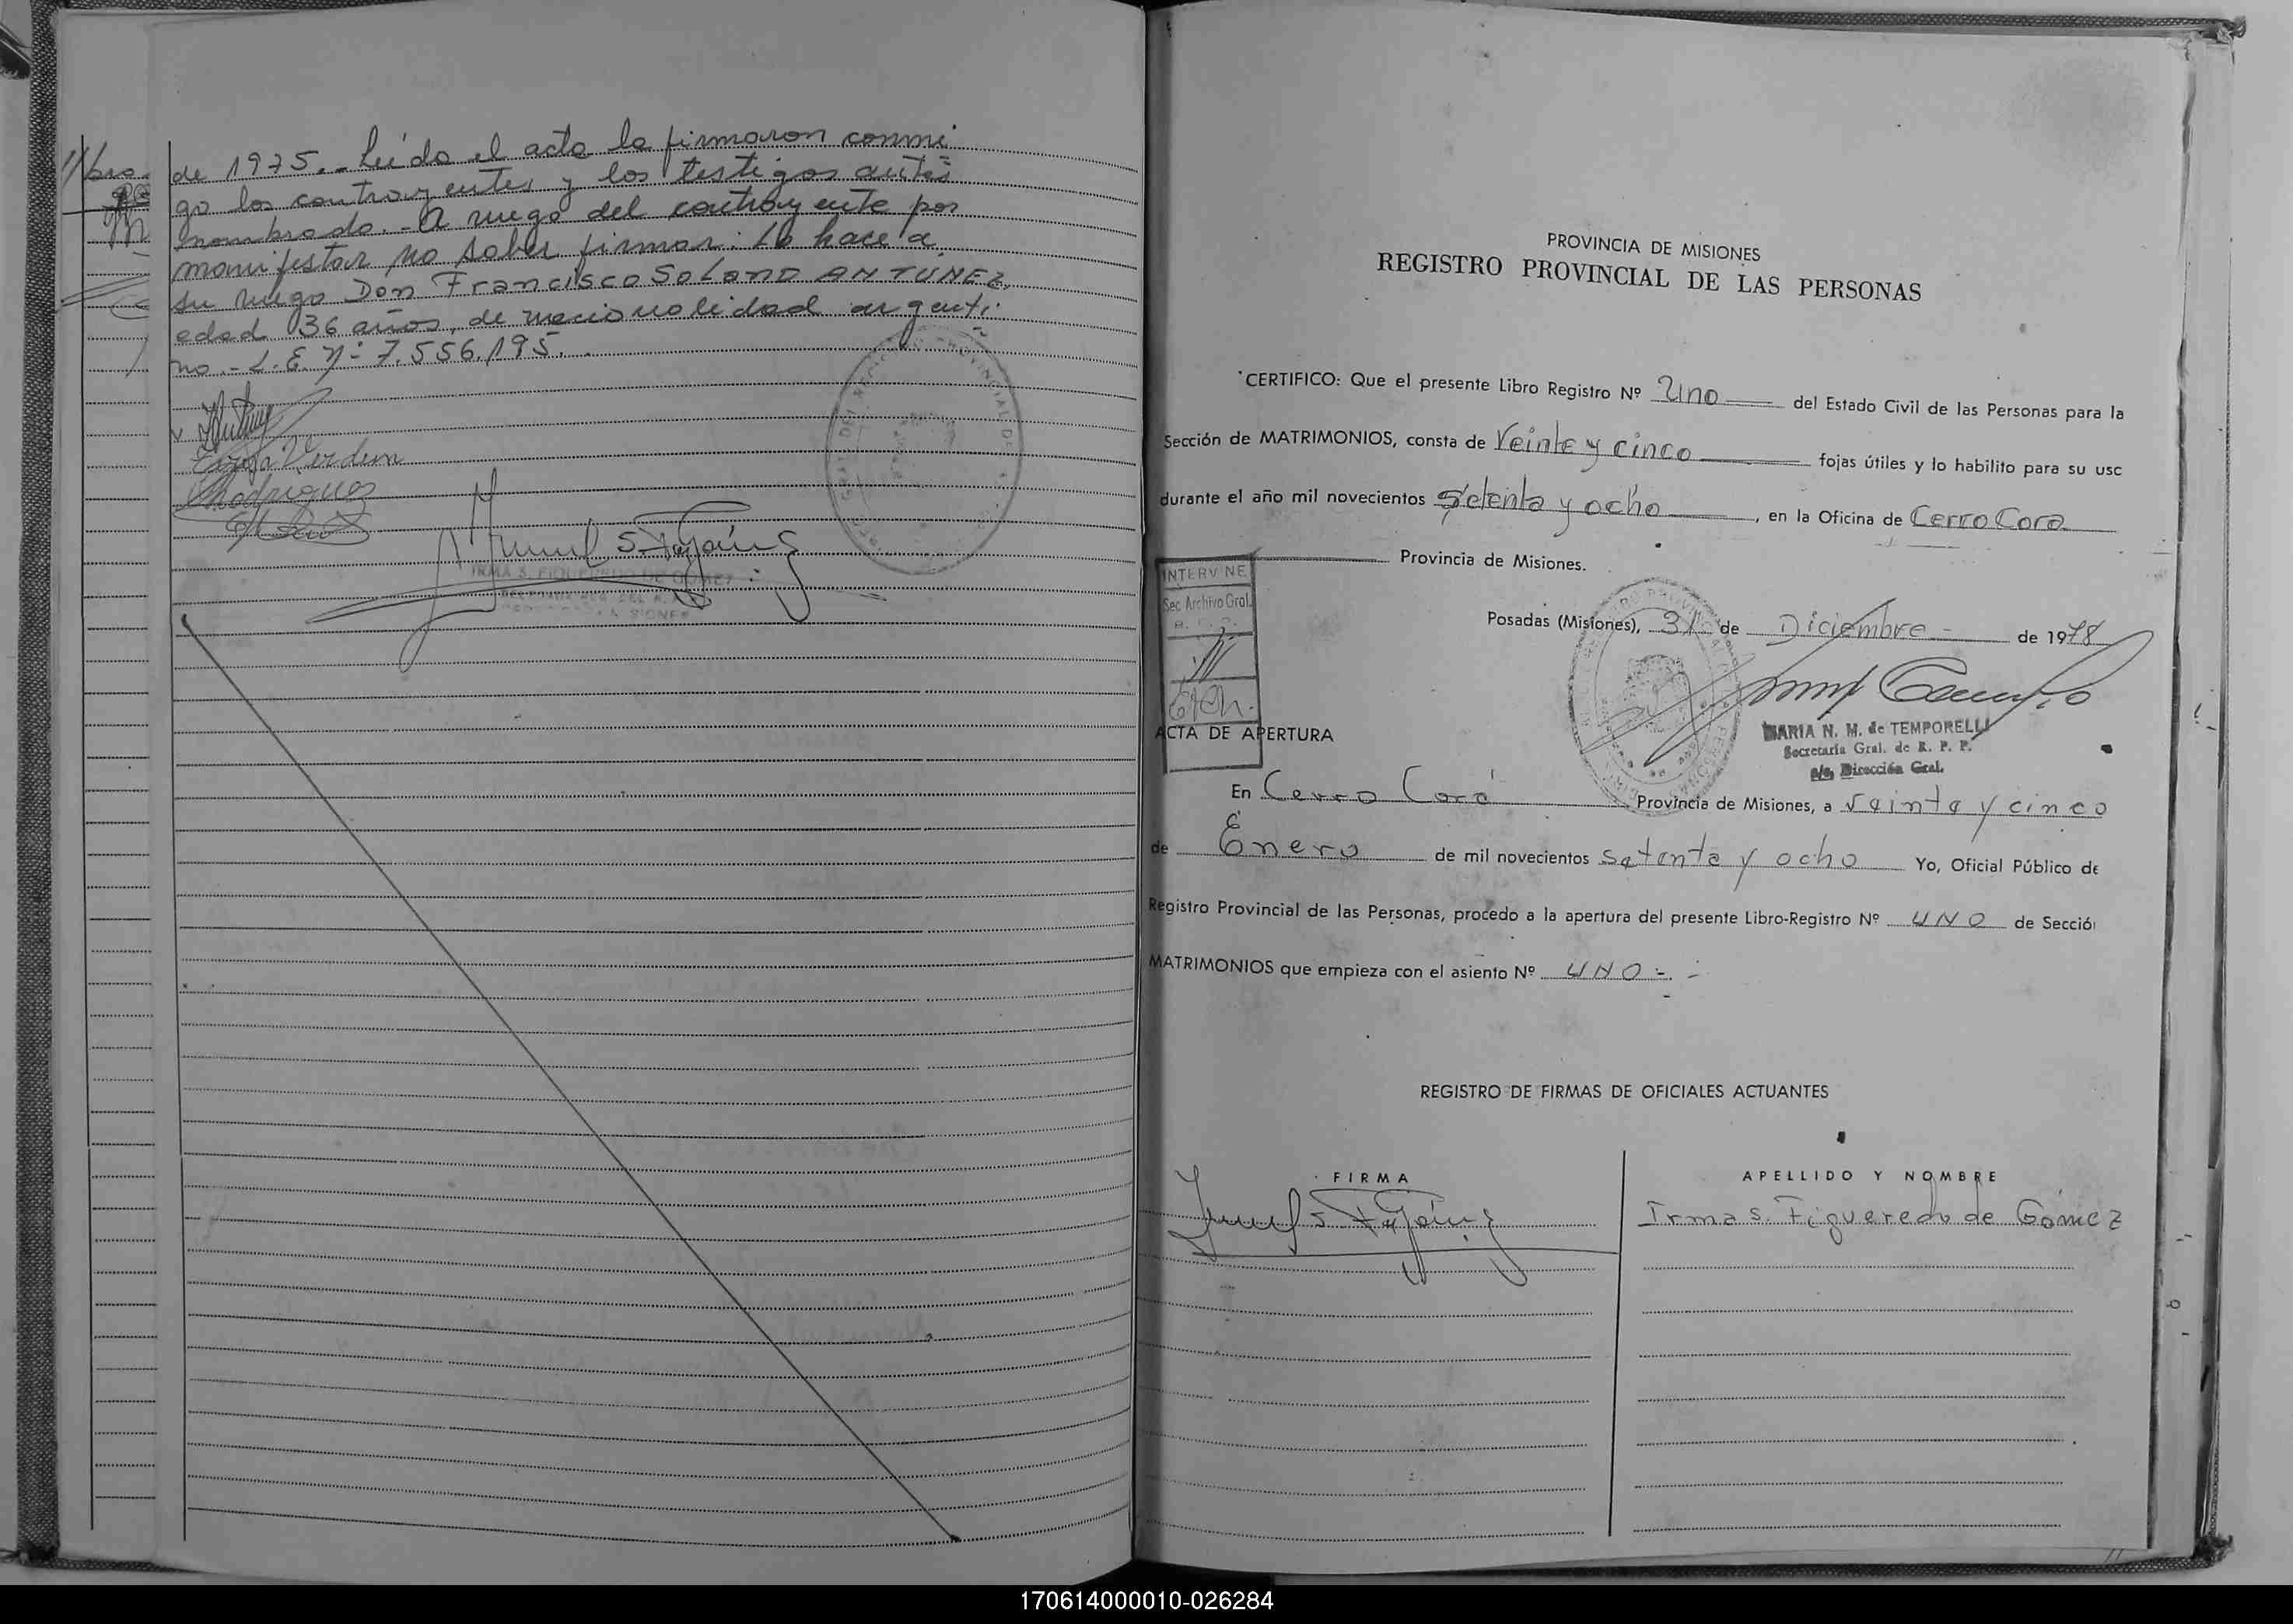 //bro.
de 1975.- Leída el acta la firmaron conmi
go los contrayentes y los testigos antes
nombrado.- A ruego del contrayente por
manifestar no saber firmar: Lo hace a
su ruego Don Francisco Solano ANTUNEZ,
edad 36 años, de nacionalidad argenti
no.- L.E. Nº 7.556.195.
Verdun
Rodriguez
IRMA S. FIGUEREDO DE GOMEZ
PROVINCIA DE MISIONES
REGISTRO PROVINCIAL DE LAS PERSONAS
CERTIFICO: Que el presente Libro Registro Nº Uno del Estado Civil de las Personas para la
Sección de MATRIMONIOS, consta de Veinte y cinco fojas útiles y lo habilito para su uso
durante el año mil novecientos Setenta y ocho, en la Oficina de Cerro Corá
Provincia de Misiones.
INTERVINE
Sec. Archivo Gral.
R. P. P.
Posadas (Misiones), 31 de Diciembre de 1978
MARIA N. M. de TEMPORELLI
Secretaria Gral. de R. P. P.
a/c. Dirección Gral.
ACTA DE APERTURA
En Cerro Corá Provincia de Misiones, a veinte y cinco
de Enero de mil novecientos setenta y ocho Yo, Oficial Público de
Registro Provincial de las Personas, procedo a la apertura del presente Libro-Registro Nº UNO de Sección
MATRIMONIOS que empieza con el asiento Nº UNO.-
REGISTRO DE FIRMAS DE OFICIALES ACTUANTES
FIRMA
APELLIDO Y NOMBRE
Irma S. Figueredo de Gómez
170614000010-026284